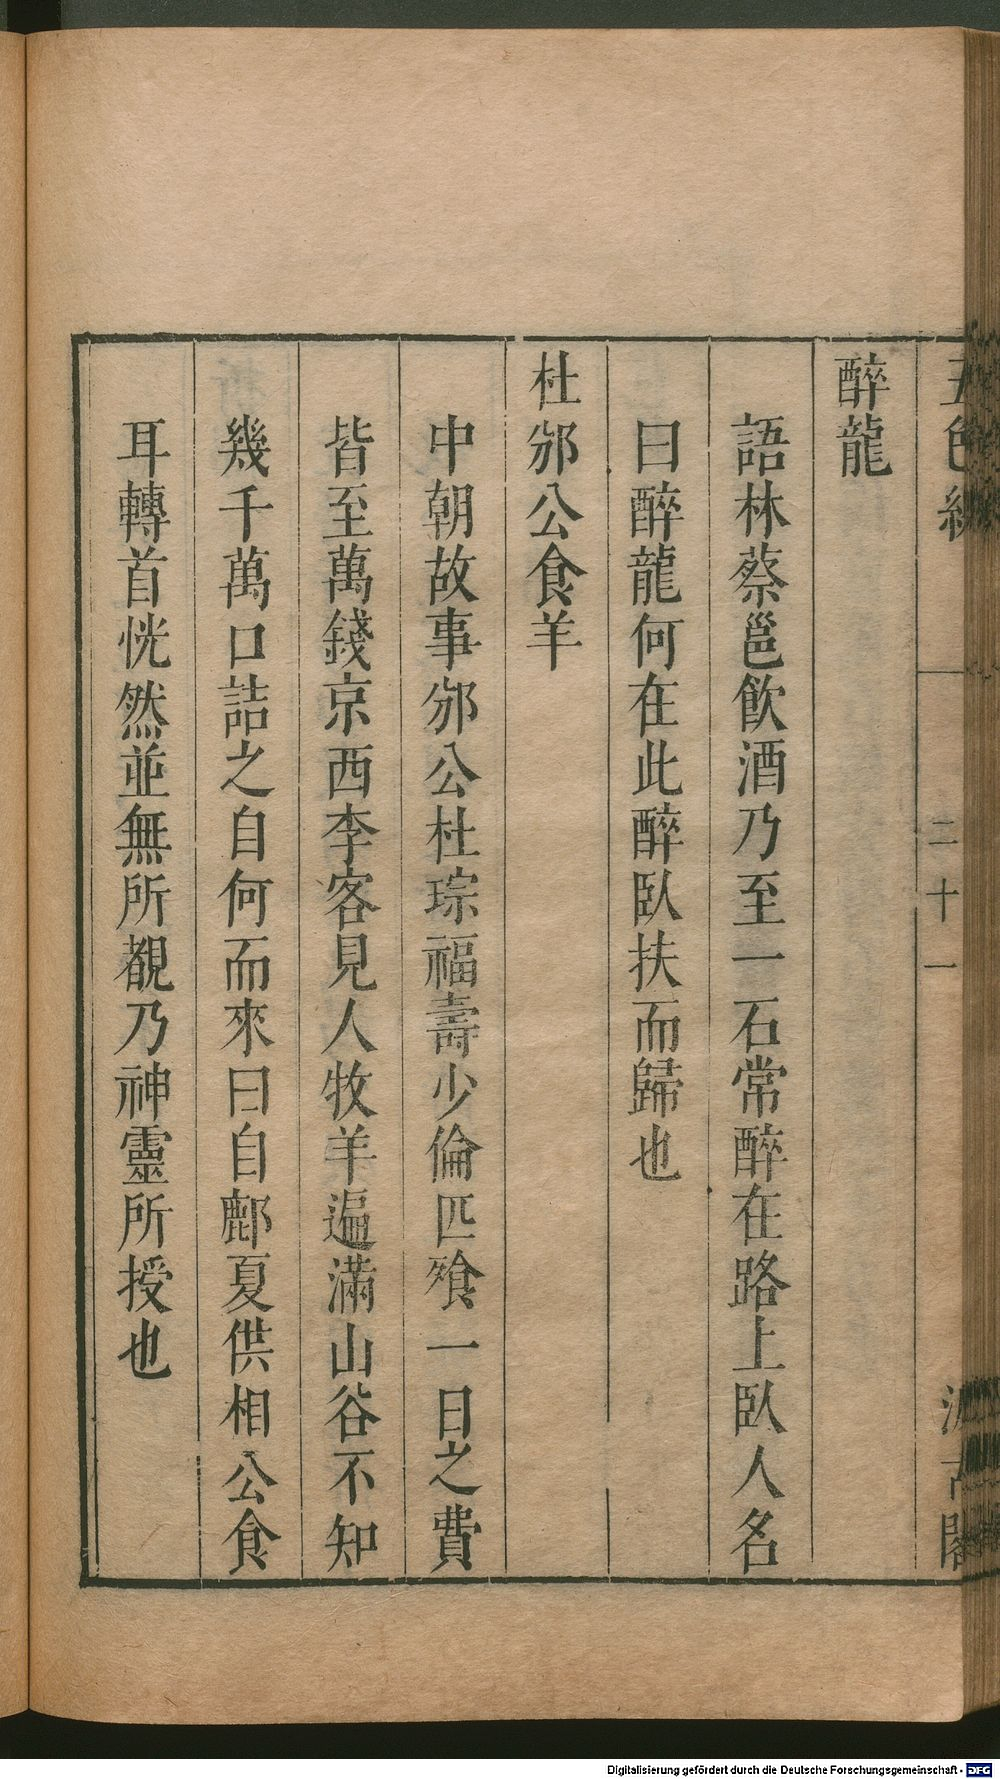 五色線
二十一
汲古閣
醉龍
語林蔡邕飲酒乃至一石常醉在路上臥人名
曰醉龍何在此醉臥扶而歸也
杜邠公食羊
中朝故事邠公杜琮福壽少倫匹飱一日之費
皆至萬錢京西李客見人牧羊遍滿山谷不知
幾千萬口詰之自何而來曰自鄜夏供相公食
耳轉首恍然並無所覩乃神靈所授也
Digitalisierung gefördert durch die Deutsche Forschungsgemeinschaft - DFG